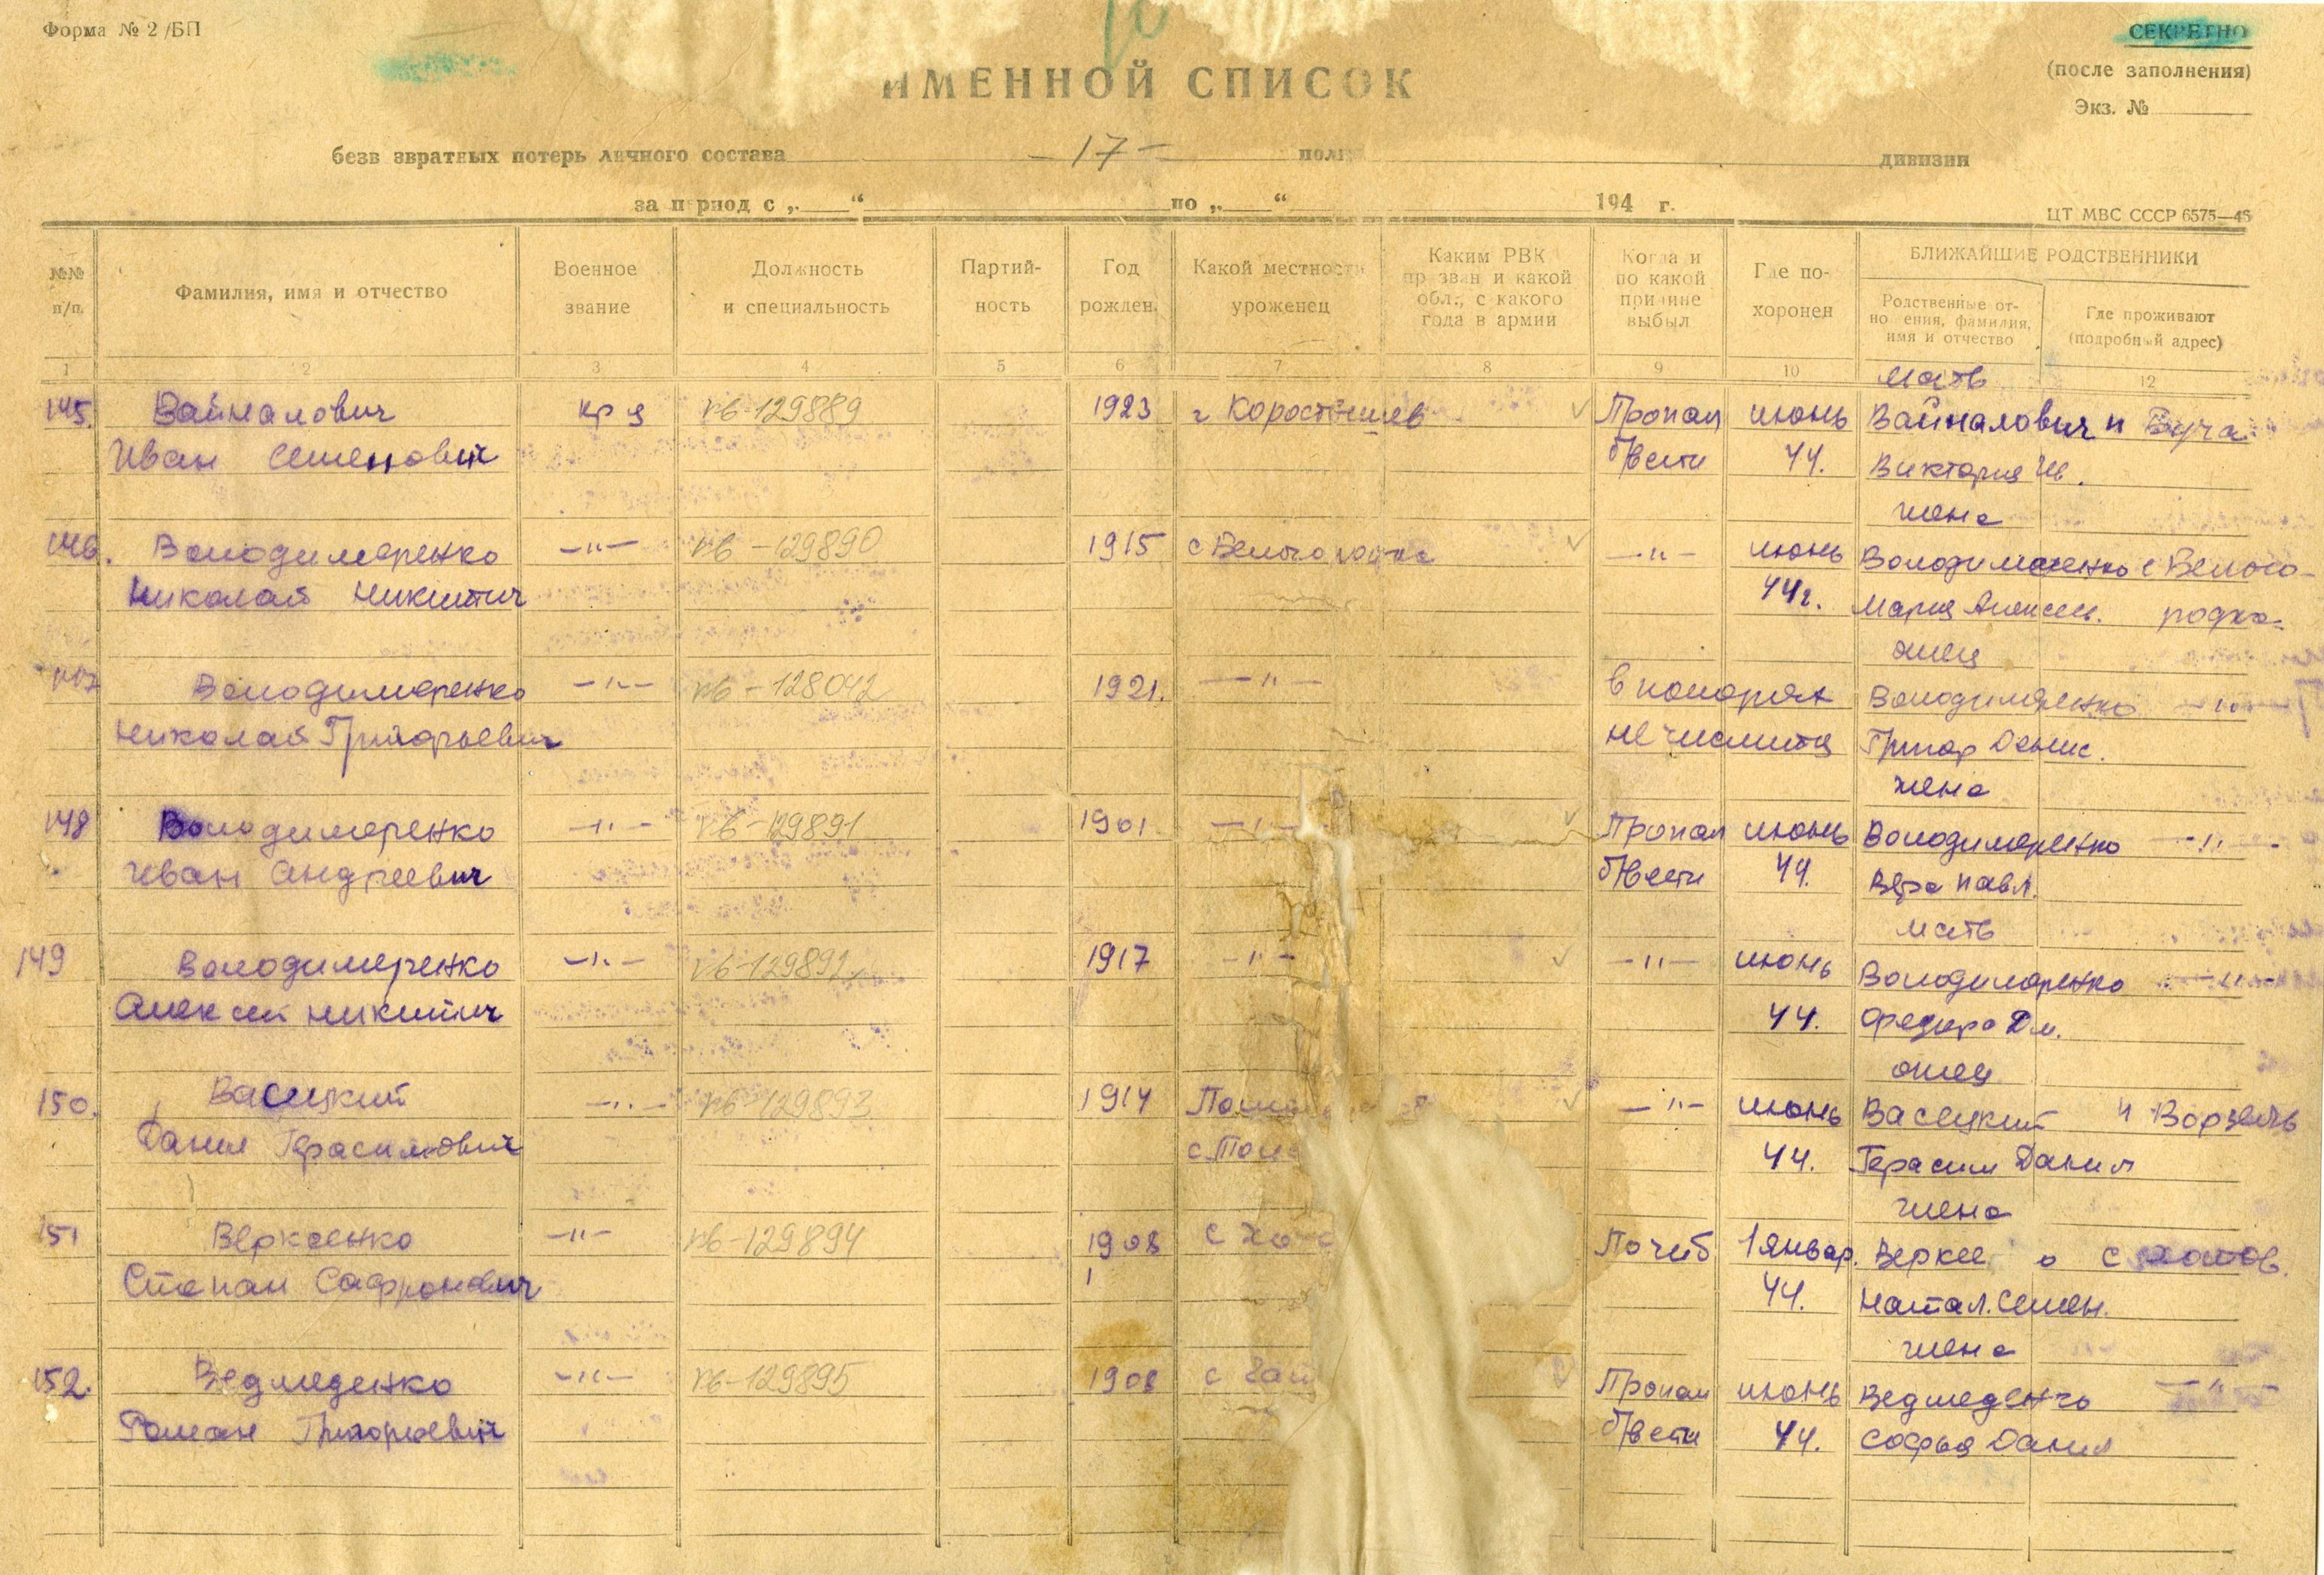 Форма № 2 /БП
СЕКРЕТНО
(после заполнения)
Экз. №
ИМЕННОЙ СПИСОК
безв звратных потерь личного состава -17- полк дивизии
за период с „ “ по „ “ 194 г.
ЦТ МВС СССР 6575—46
№№ п/п.
Фамилия, имя и отчество
Военное звание
Должность и специальность
Партий-ность
Год рожден.
Какой местности уроженец
Каким РВК призван и какой обл., с какого года в армии
Когда и по какой причине выбыл
Где по-хоронен
БЛИЖАЙШИЕ РОДСТВЕННИКИ
Родственные от-но ения, фамилия, имя и отчество
Где проживают (подробный адрес)
1 2 3 4 5 6 7 8 9 10 12
мать
145. Вайналович кр ц пб-129889 1923 г Коростышев Пропал июнь Вайналович п Буча
Иван Семенович б/вести 44. Виктория Ив.
жена
146. Володимеренко —"— пб-129890 1915 с Белогородка —"— июнь Володимеренко с Белого-
Николай Никитич 44г. Мария Алексеев. родка
отец
147 Володимеренко —"— пб-128042 1921. —"— в потерях Володимеренко —"—
Николай Григорьевич не числится Григор Денис.
жена
148 Володимеренко —"— пб-129891 1901 —"— Пропал июнь Володимеренко —"—
Иван Андреевич б/вести 44. Вера Павл.
мать
149 Володимеренко —"— пб-129892 1917 —"— —"— июнь Володимеренко —"—
Алексей Никитич 44. Федора Дм.
отец
150. Васецкий —"— пб-129893 1914 —"— июнь Васецкий п Ворзель
Данил Герасимович 44. Герасим Данил
жена
151 Веркеенко —"— пб-129894 1908 с Пагиб 1 январ. Веркее о с
Степан Сафронович 44. Натал. Семен.
жена
152. Ведмеденко —"— пб-129895 1908 с Пропал июнь Ведмеденко —"—
Роман Григорьевич б/вести 44. Софья Данил